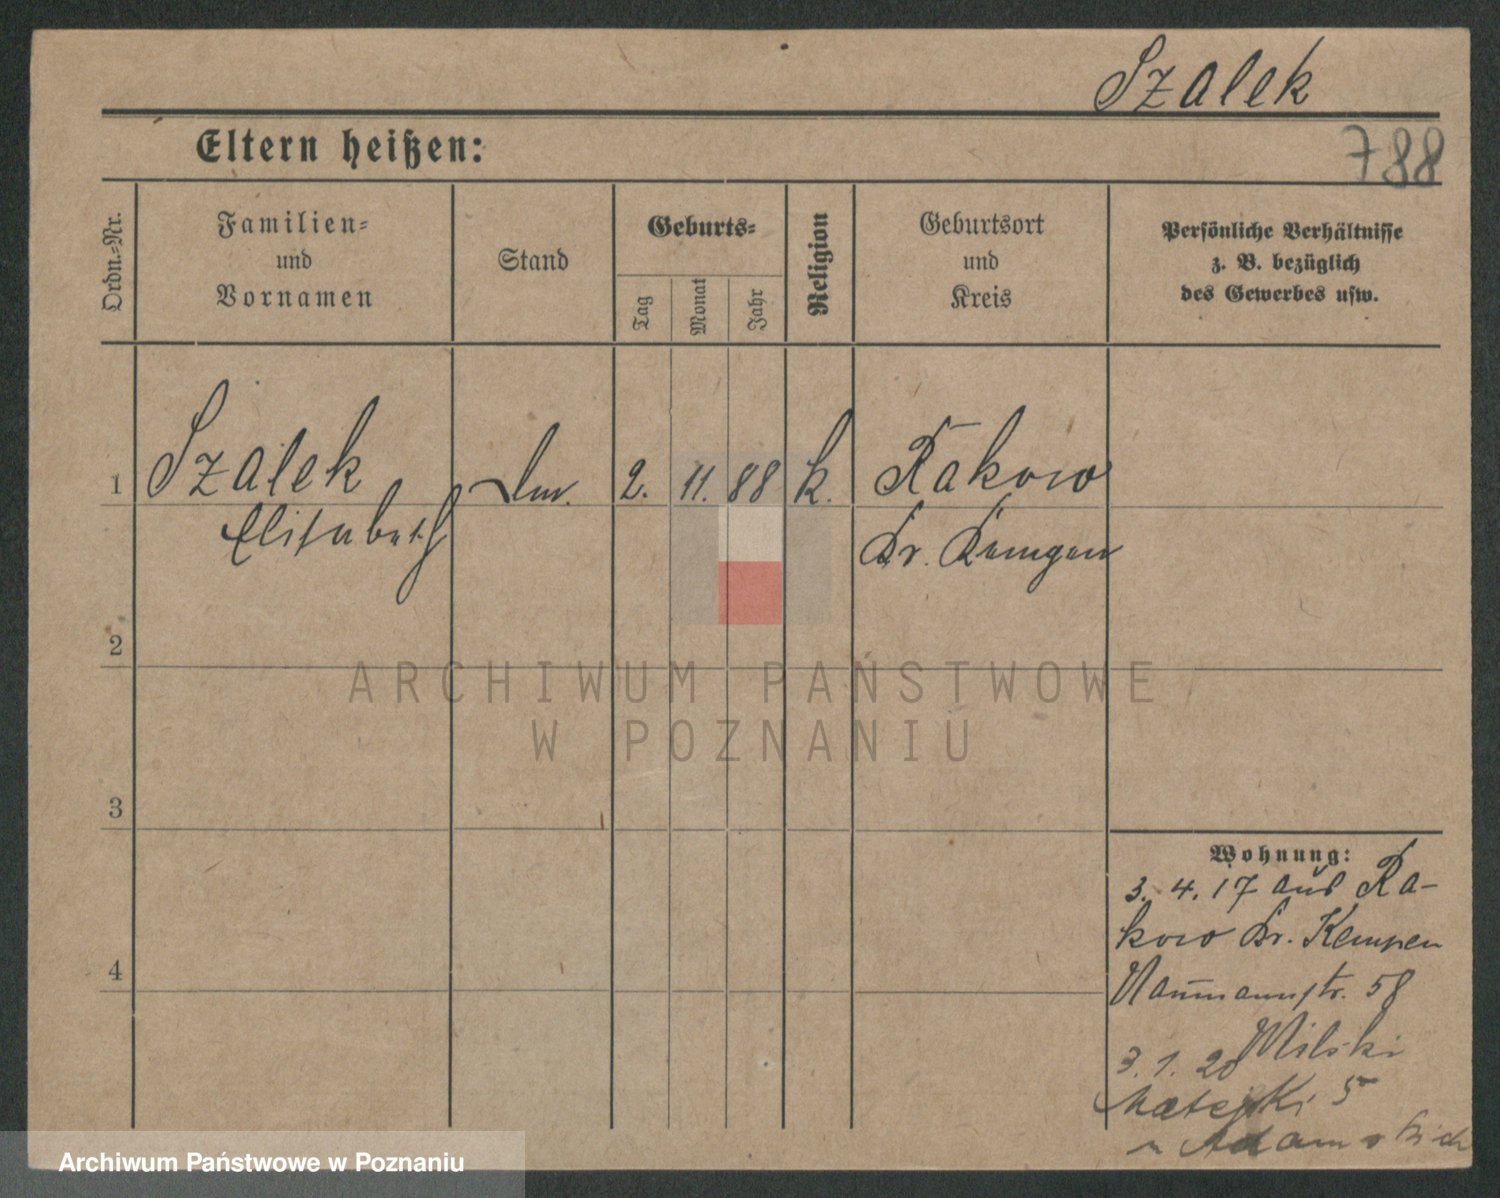 Szalek
Eltern heißen:
788
Ordn.-Nr.
Familien-
und
Vornamen
Stand
Geburts-
Tag
Monat
Jahr
Religion
Geburtsort
und
Kreis
Persönliche Verhältnisse
z. B. bezüglich
des Gewerbes usw.
1
Szalek
2. 11. 88
k.
Rakow
Elisabeth
Kr. Kempen
2
3
4
Wohnung:
3. 4. 17 aus Ra-
kow Kr. Kempen
Naumannstr. 58
Milski
3. 1. 20
Matejki 5
ARCHIWUM PAŃSTWOWE
W POZNANIU
Archiwum Państwowe w Poznaniu